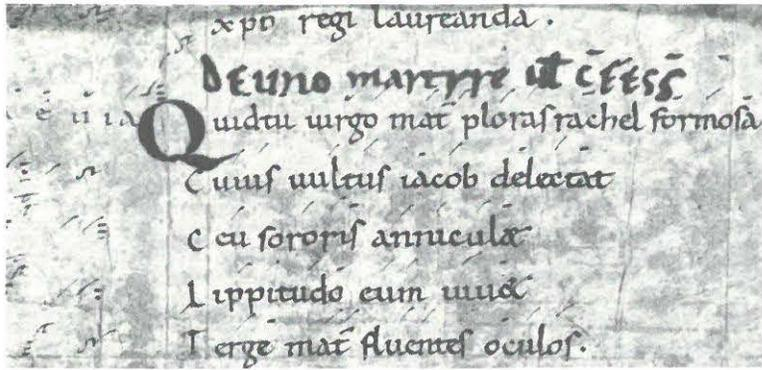 xpō regi laureanda.
DE UNO martyre uł c̄fess̄
Quid tu uirgo mat̄ ploras rachel formosā
Cuius uultus iacob delectat
Ceu sororis anniculae
Lippitudo eum iuuet
Terge mat̄ fluentes oculos.